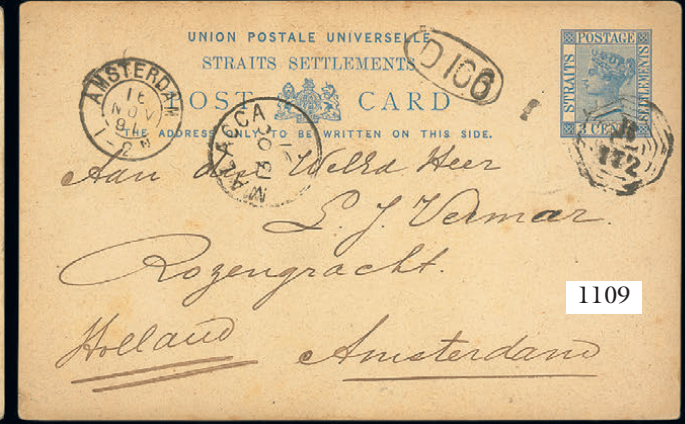 UNION POSTALE UNIVERSELLE
STRAITS SETTLEMENTS
POST CARD
THE ADDRESS ONLY TO BE WRITTEN ON THIS SIDE.
D 106
POSTAGE
STRAITS
SETTLEMENTS
3 CEN
B
172
AMSTERDAM
16
NOV
MALACCA
Aan den Heer
L. J. Vermar.
Rozengracht.
Holland
Amsterdam
1109